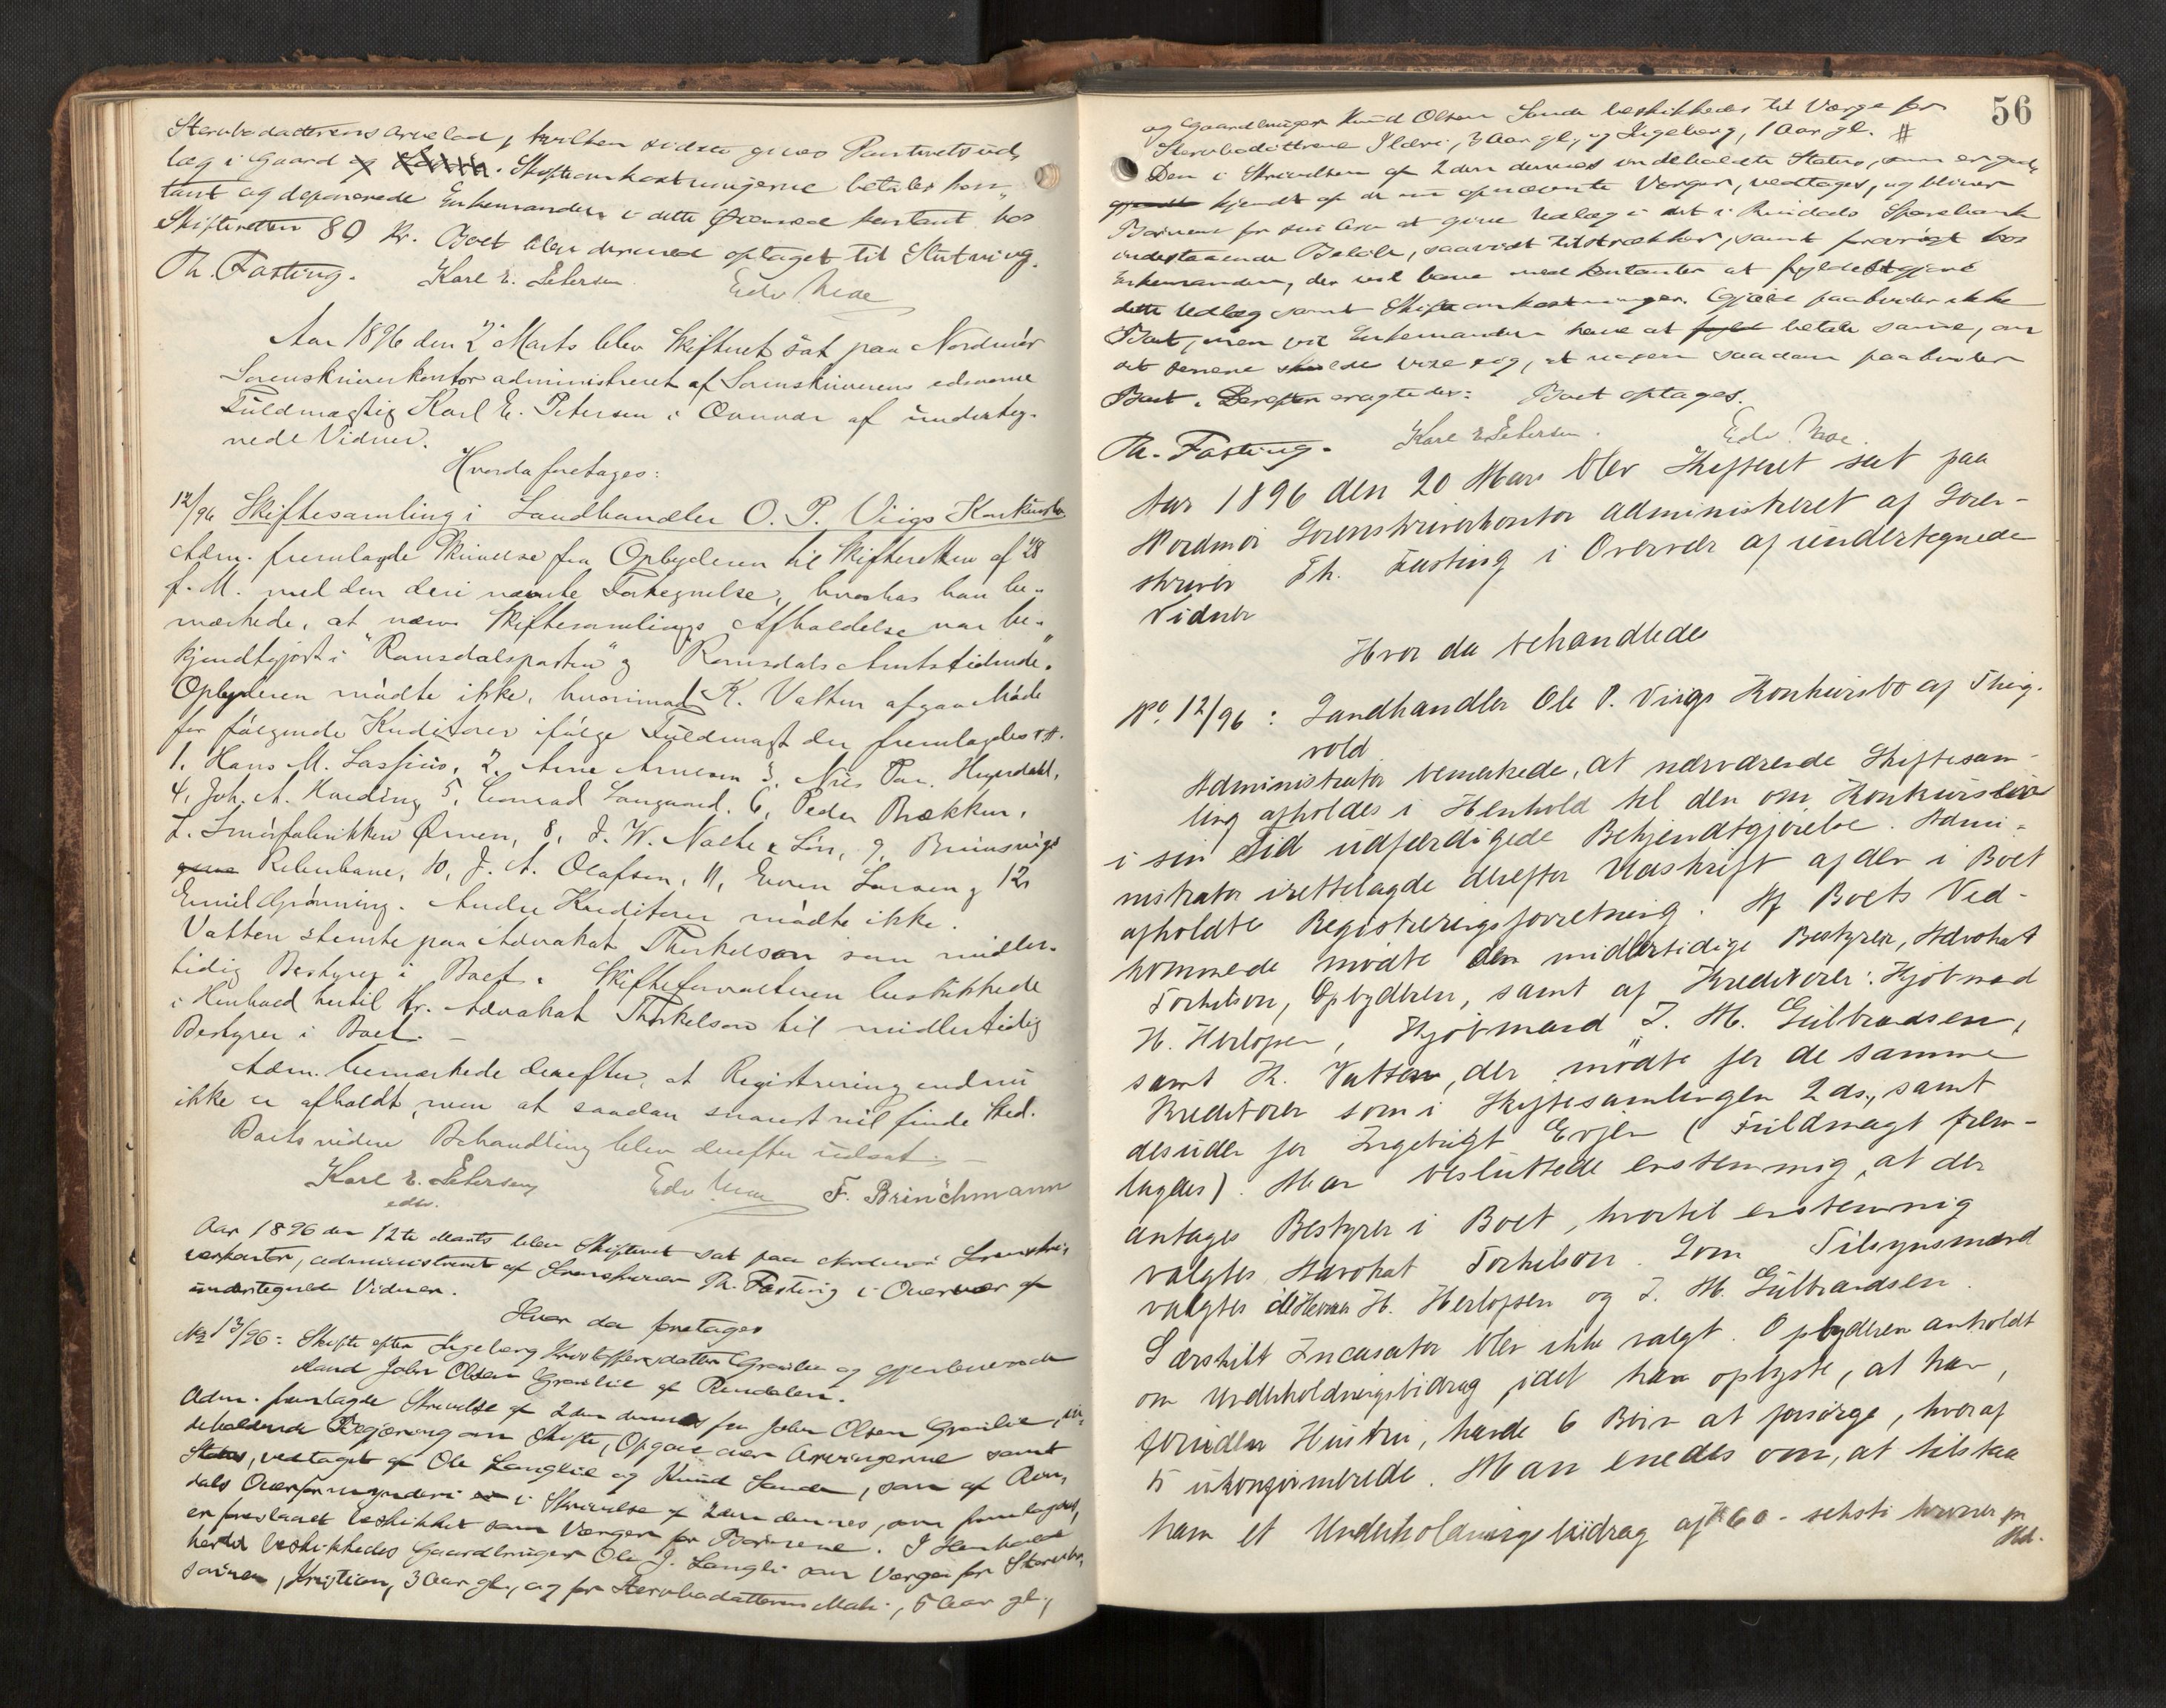 Stervbodatterens arvelod, hvilken sidste gives Panteretsud,
læg i Gaard og. Skifteomkostningerne betales kon,,
tant og deponerede Enkemanden i dette Øiemed kontant hos
Skifteretten 80 Kr. Boet blev dermed optaget til Slutning.
Th. Fasting. Karl E. Petersen. Edv Moe
Aar 1896 den 2 Marts blev Skifteret sat paa Nordmør
Sorenskriverkontor administreret af Sorenskriverens edsvorne
Fuldmægtig Karl E. Petersen i Overvær af underteg-
nede Vidner.
Hvorda foretages:
12/96 Skiftesamling i Landhandler O. P. Viigs Konkursbo
Adm. fremlagde Skrivelse fra Opbyderen til Skifteretten af 28
f. M. med den deri nævnte Fortegnelse, hvorhos han be-
mærkede, at nærv. Skiftesamlings Afholdelse var be-
kjendtgjort i "Romsdalsposten" og "Romsdals Amtstidende".
Opbyderen mødte ikke, hvorimod K. Vatten afgav Møde
for følgende Kreditorer ifølge Fuldmagt der fremlagdes
1, Hans M. 2, Arne Arnesen 3, Nils
4, Joh. A. Harding 5, Conrad Langaard, 6, Peder Brækken,
7. Smørfabrikken Ørnen, 8, J. W. & Søn, 9, Brunsvigs
Reberbane, 10, J. A. Olafsen, 11, Larsen og 12,
Emil Grønning. Andre Kreditorer mødte ikke.
Vatten stemte paa Advokat Thorkelson som midler-
tidig Bestyrer i Boet. Skifteforvalteren beskikkede
i Henhold hertil Hr. Advokat Thorkelson til midlertidig
Bestyrer i Boet. -
Adm. bemærkede derefter, at Registrering endnu
ikke er afholdt, men at saadan snarest vil finde Sted.
Boets videre Behandling blev derefter udsat. -
Karl E. Petersen Edv Moe F. Brinchmann
edsv.
Aar 1896 den 12te Marts blev Skifteret sat paa Nordmør Sorenskri,
verkontor, administreret af Sorenskriver Th. Fasting i Overvær af
undertegnede Vidner.
Hvor da foretages
No 13/96: Skifte efter Ingeborg Kristoffersdatter Granlie og gjenlevende
Mand John Olsen Granlie af Rindalen.
Adm. fremlagde Skrivelse af 2den dennes fra John Olsen Granlie, in,
deholdende Begjæring om Skifte, Opgave over Arvingerne samt
Status, vedtaget af Ole Langlie og Knud Sande, som af Rin,
dals Overformynderi i Skrivelse af 2den dennes, som fremlagdes,
er foreslaaet beskikket som Værger for Børnene. I Henhold
hertil beskikkedes Gaardbruger Ole J. Langli som Værge for Stervbo,
sønnen, Kristian, 3 Aar gl., og for Stervbodatteren Mali, 5 Aar gl.,
56
og Gaardbruger Knud Olsen Sande beskikkedes til Værge for
Stervbodøttrene Ildri, 3 Aar gl., og Ingeborg, 1 Aar gl. #
Den i Skrivelsen af 2den dennes indeholdte Status, som er god,
kjendt af de nu opnævnte Værger, vedtages, og bliver
Børnene for sin Arv at give Udlæg i det i Rindals Sparebank
indestaaende Beløb, saavidt tilstrækker, samt forøvrigt hos
Enkemanden, der vil have med Kontanter at fyldestgjøre
dette Udlæg samt Skifteomkostninger. Gjæld paahviler ikke
Boet, men vil Enkemanden have at betale samme, om
det senere skulde vise sig, at nogen saadan paahviler
Boet. Derefter eragtedes: Boet optages.
Th. Fasting. Karl E. Petersen. Edv. Moe.
Aar 1896 den 20 Mars blev Skifteret sat paa
Nordmør Sorenskriverkontor administreret af Soren-
skriver Th. Fasting i Overvær af undertegnede
Vidner
Hvor da behandledes
No. 12/96: Landhandler Ole P. Viigs Konkursbo af Thing-
vold
Administrator bemerkede, at nærværende Skiftesam-
ling afholdes i Henhold til den om Konkursen
i sin Tid udfærdigede Bekjendtgjørelse. Admi-
nistrator irettelagde derefter Udskrift af den i Boet
afholdte Registreringsforretning. Af Boets Ved-
kommende mødte den midlertidige Bestyrer, Advokat
Torkelson, Opbyderen, samt af Kreditorer: Kjøbmad
H. Herlofsen, Kjøbmand J. M. Gulbrandsen,
samt K. Vatten, der mødte for de samme
Kreditorer som i Skiftesamlingen 2 ds., samt
desuden for Ingebrigt Evjen (Fuldmagt frem-
lagdes). Man besluttede enstemmig, at der
antages Bestyrer i Boet, hvortil enstemmig
valgtes Advokat Torkelson. Som Tilsynsmænd
valgtes d'Herrer H. Herlofsen og J. M. Gulbrandsen.
Særskilt Incasator blev ikke valgt. Opbyderen anholdt
om Underholdningsbidrag, idet han oplyste, at han,
foruden Hustru, havde 6 Børn at forsørge, hvoraf
5 ukonfirmerede. Man enedes om, at tilstaa
ham et Underholdningsbidrag af Kr 60 - seksti kroner pr
Md.